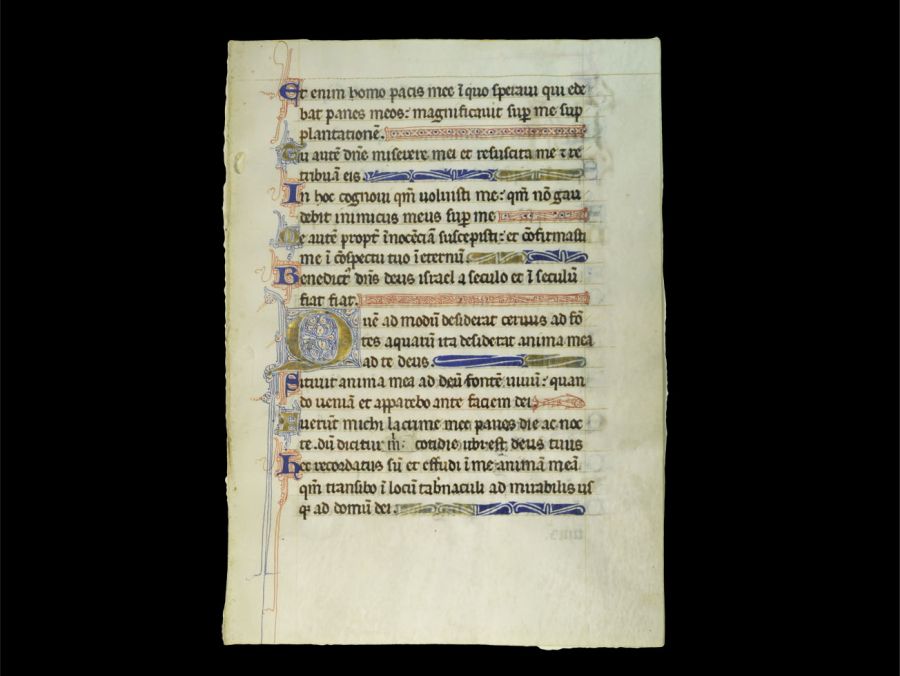 Et enim homo pacis mee ĩ quo speraui qui ede
bat panes meos: magnificauit sup̱ me sup
plantationẽ.
Tu autẽ dñe miserere mei et resuscita me ⁊ re
tribuã eis
In hoc cognoui qm̃ uoluisti me: qm̃ nõ gau
debit inimicus meus sup̱ me
Me autẽ propt̃ ĩnocẽciã suscepisti: et cõfirmasti
me ĩ cõspectu tuo ĩ eternũ.
Benedictꝰ dñs deus israel a seculo et ĩ seculũ
fiat fiat.
Quẽ ad modũ desiderat ceruus ad fõ
tes aquarũ ita desiderat anima mea
ad te deus.
Sitiuit anima mea ad deũ fontẽ uiuũ: quan
do ueniã et apparebo ante faciem dei.
Fuerũt michi lacrime mee panes die ac noc
te. dũ dicitur m̃: cotidie ubi est deus tuus
hec recordatus sũ et effudi ĩ me animã meã.
qm̃ transibo ĩ locũ tab̃naculi ad mirabilis us
qꝫ ad domũ dei.